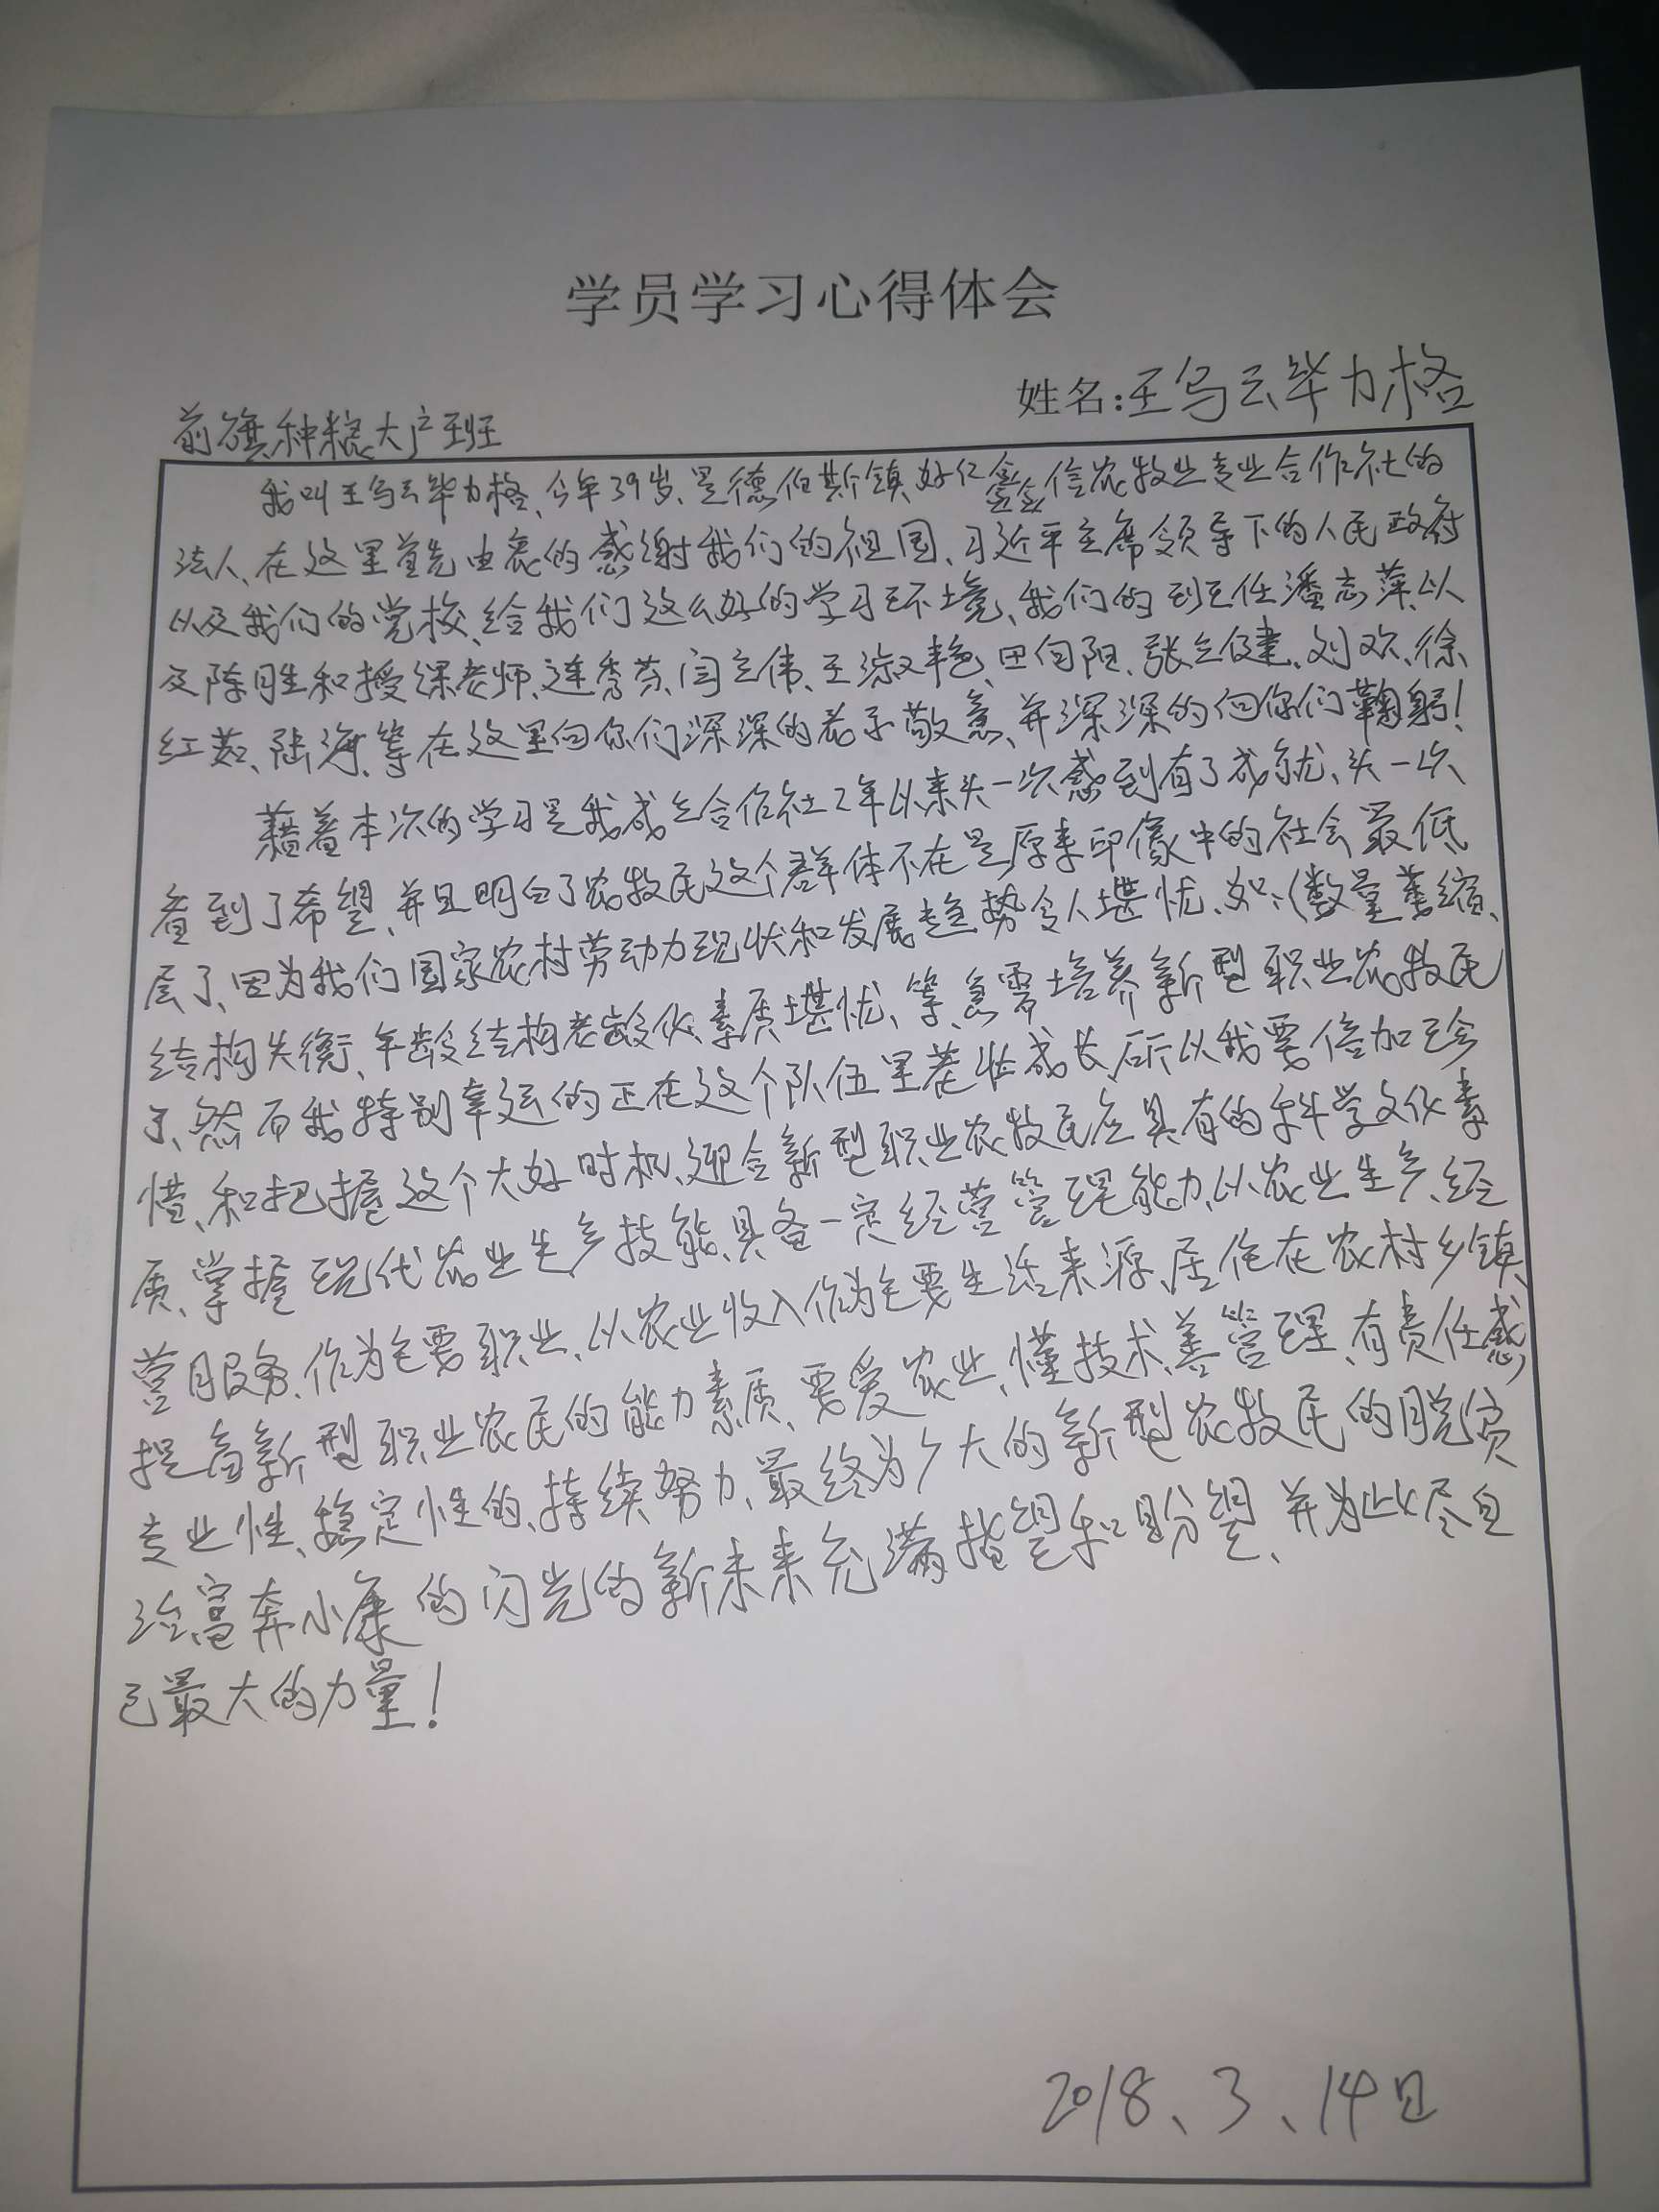 学员学习心得体会
姓名:王乌云毕力格
前旗种粮大户班
我叫王乌云毕力格、今年39岁、是德伯斯镇、好仁鑫信农牧业专业合作社的
法人、在这里首先由衷的感谢我们的祖国、习近平主席领导下的人民政府
以及我们的党校、给我们这么好的学习环境、我们的班主任潘志萍、以
及陈胜和授课老师、连秀芬、闫立伟、王淑艳、田向阳、张立健、刘欢、徐
红茹、陆海、等在这里向你们深深的表示敬意、并深深的向你们鞠躬!
藉着本次的学习是我成立合作社2年以来头一次感到有了成就、头一次
看到了希望、并且明白了农牧民这个群体不在是原来印像中的社会最低
层了、因为我们国家农村劳动力现状和发展趋势令人堪忧、如、(数量萎缩、
结构失衡、年龄结构老龄化、素质堪忧、等、急需培养新型职业农牧民
了、然而我特别幸运的正在这个队伍里茁壮成长、所以我要倍加珍
惜、和把握这个大好时机、迎合新型职业农牧民应具有的科学文化素
质、掌握现代农业生产技能、具备一定经营管理能力、以农业生产、经
营服务、作为主要职业、以农业收入作为主要生活来源、居住在农村乡镇、
提高新型职业农民的能力素质、要爱农业、懂技术、善管理、有责任感
专业性、稳定性的、持续努力、最终为广大的新型农牧民的脱贫
致富奔小康的闪光的新未来充满指望和盼望、并为此尽自
己最大的力量!
2018、3、14日